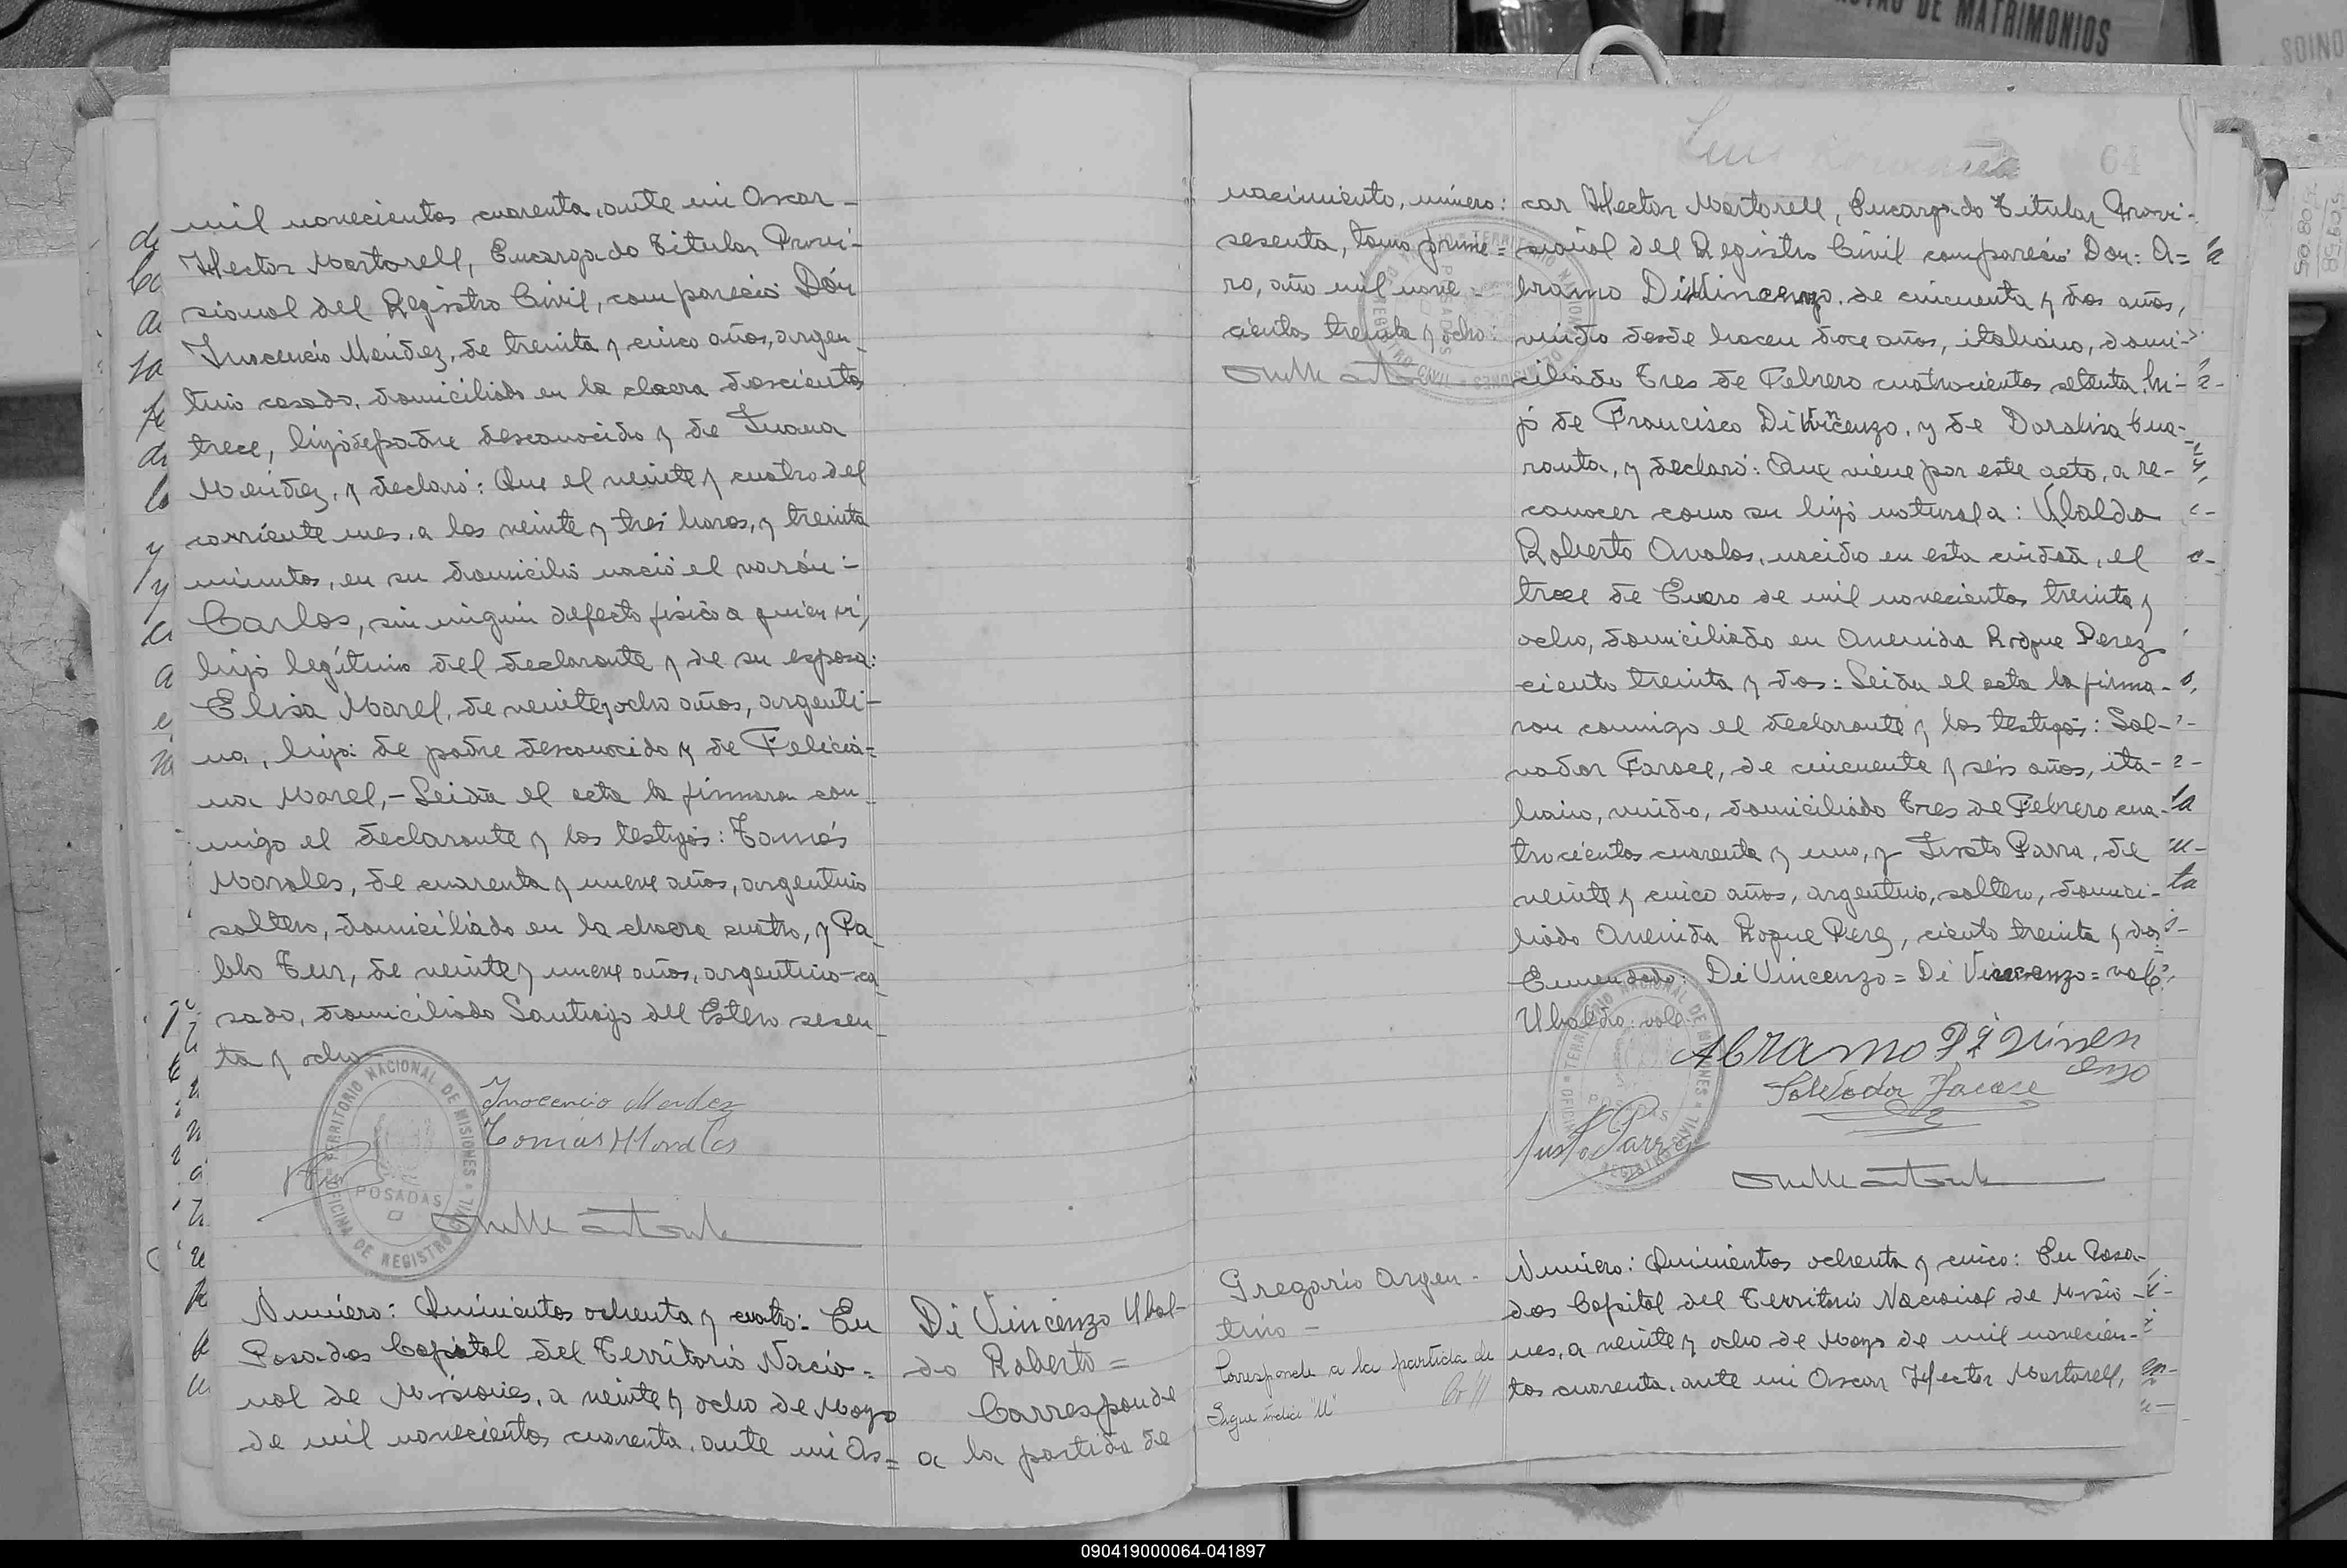 mil novecientos cuarenta, ante mi Oscar -
Hector Martorell, Encargado Titular Provi-
sional del Registro Civil, compareció Dón
Inocencio Mendez, de treinta y cinco años, argen-
tino casado, domiciliado en la chacra doscientos
trece, hijo de padre desconocido y de Juana
Mendez, y declaró: Que el veinte y cuatro del
corriente mes, a las veinte y tres horas, y treinta
minutos, en su domicilio nació el varón -
Carlos, sin ningun defecto fisico a quien ví,
hijo legítimo del declarante y de su esposa:
Elisa Marel, de veinte y ocho años, argenti-
na, hija: de padre desconocido y de Felicia=
na Marel, - Leida el acta la firmaron con-
migo el declarante y los testigos: Tomás
Morales, de cuarenta y nueve años, argentino
soltero, domiciliado en la chacra cuatro, y Pa-
blo Tur, de veinte y nueve años, argentino - ca-
sado, domiciliado Santiago del Estero sesen-
ta y ocho
Inocencio Mendez
Tomás Morales
OFICINA DE REGISTRO CIVIL TERRITORIO NACIONAL DE MISIONES
POSADAS
Número: Quinientos ochenta y cuatro: En
Posadas Capital del Territorio Nacio-
nal de Misiones, a veinte y ocho de Mayo
de mil novecientos cuarenta, ante mi Os=
Di Vincenzo Ubal-
do Roberto =
Corresponde
a la partida de
64
nacimiento, número:
sesenta, tomo prime=
ro, año mil nove-
cientos treinta y ocho:
car Hector Martorell, Encargado Titular Provi-
sional del Registro Civil compareció Don: A=
bramo Di Vincenzo, de cincuenta y dos años,
viudo desde hacen doce años, italiano, domi-
ciliado Tres de Febrero cuatrocientos setenta, hi-
jo de Francisco Di Vincenzo, y de Doralisa Cua-
ranta, y declaró: Que viene por este acto, a re-
conocer como su hijo natural a: Ubaldo
Roberto Avalos, nacido en esta ciudad, el
trece de Enero de mil novecientos treinta y
ocho, domiciliado en Avenida Roque Perez
ciento treinta y dos: Leida el acta la firma-
ron conmigo el declarante y los testigos: Sal-
vador Farace, de cincuenta y seis años, ita-
liano, viudo, domiciliado Tres de Febrero cua-
trocientos cuarenta y uno, y Justo Parra, de
veinte y cinco años, argentino, soltero, domici-
liado Avenida Roque Perez, ciento treinta y dos
Enmendado: Di Vincenzo = Di Vincenzo = vale
Ubaldo: vale
Abramo Di Vinsen
enzo
Salvador Farace
Justo Parra
OFICINA DE REGISTRO CIVIL TERRITORIO NACIONAL DE MISIONES
POSADAS
Gregorio Argen-
tino -
Corresponde a la partida de
Sigue indice "U"
Número: Quinientos ochenta y cinco: En Posa-
das Capital del Territorio Nacional de Misio-
nes, a veinte y ocho de Mayo de mil novecien-
tos cuarenta, ante mi Oscar Hector Martorell,
DE MATRIMONIOS
090419000064-041897